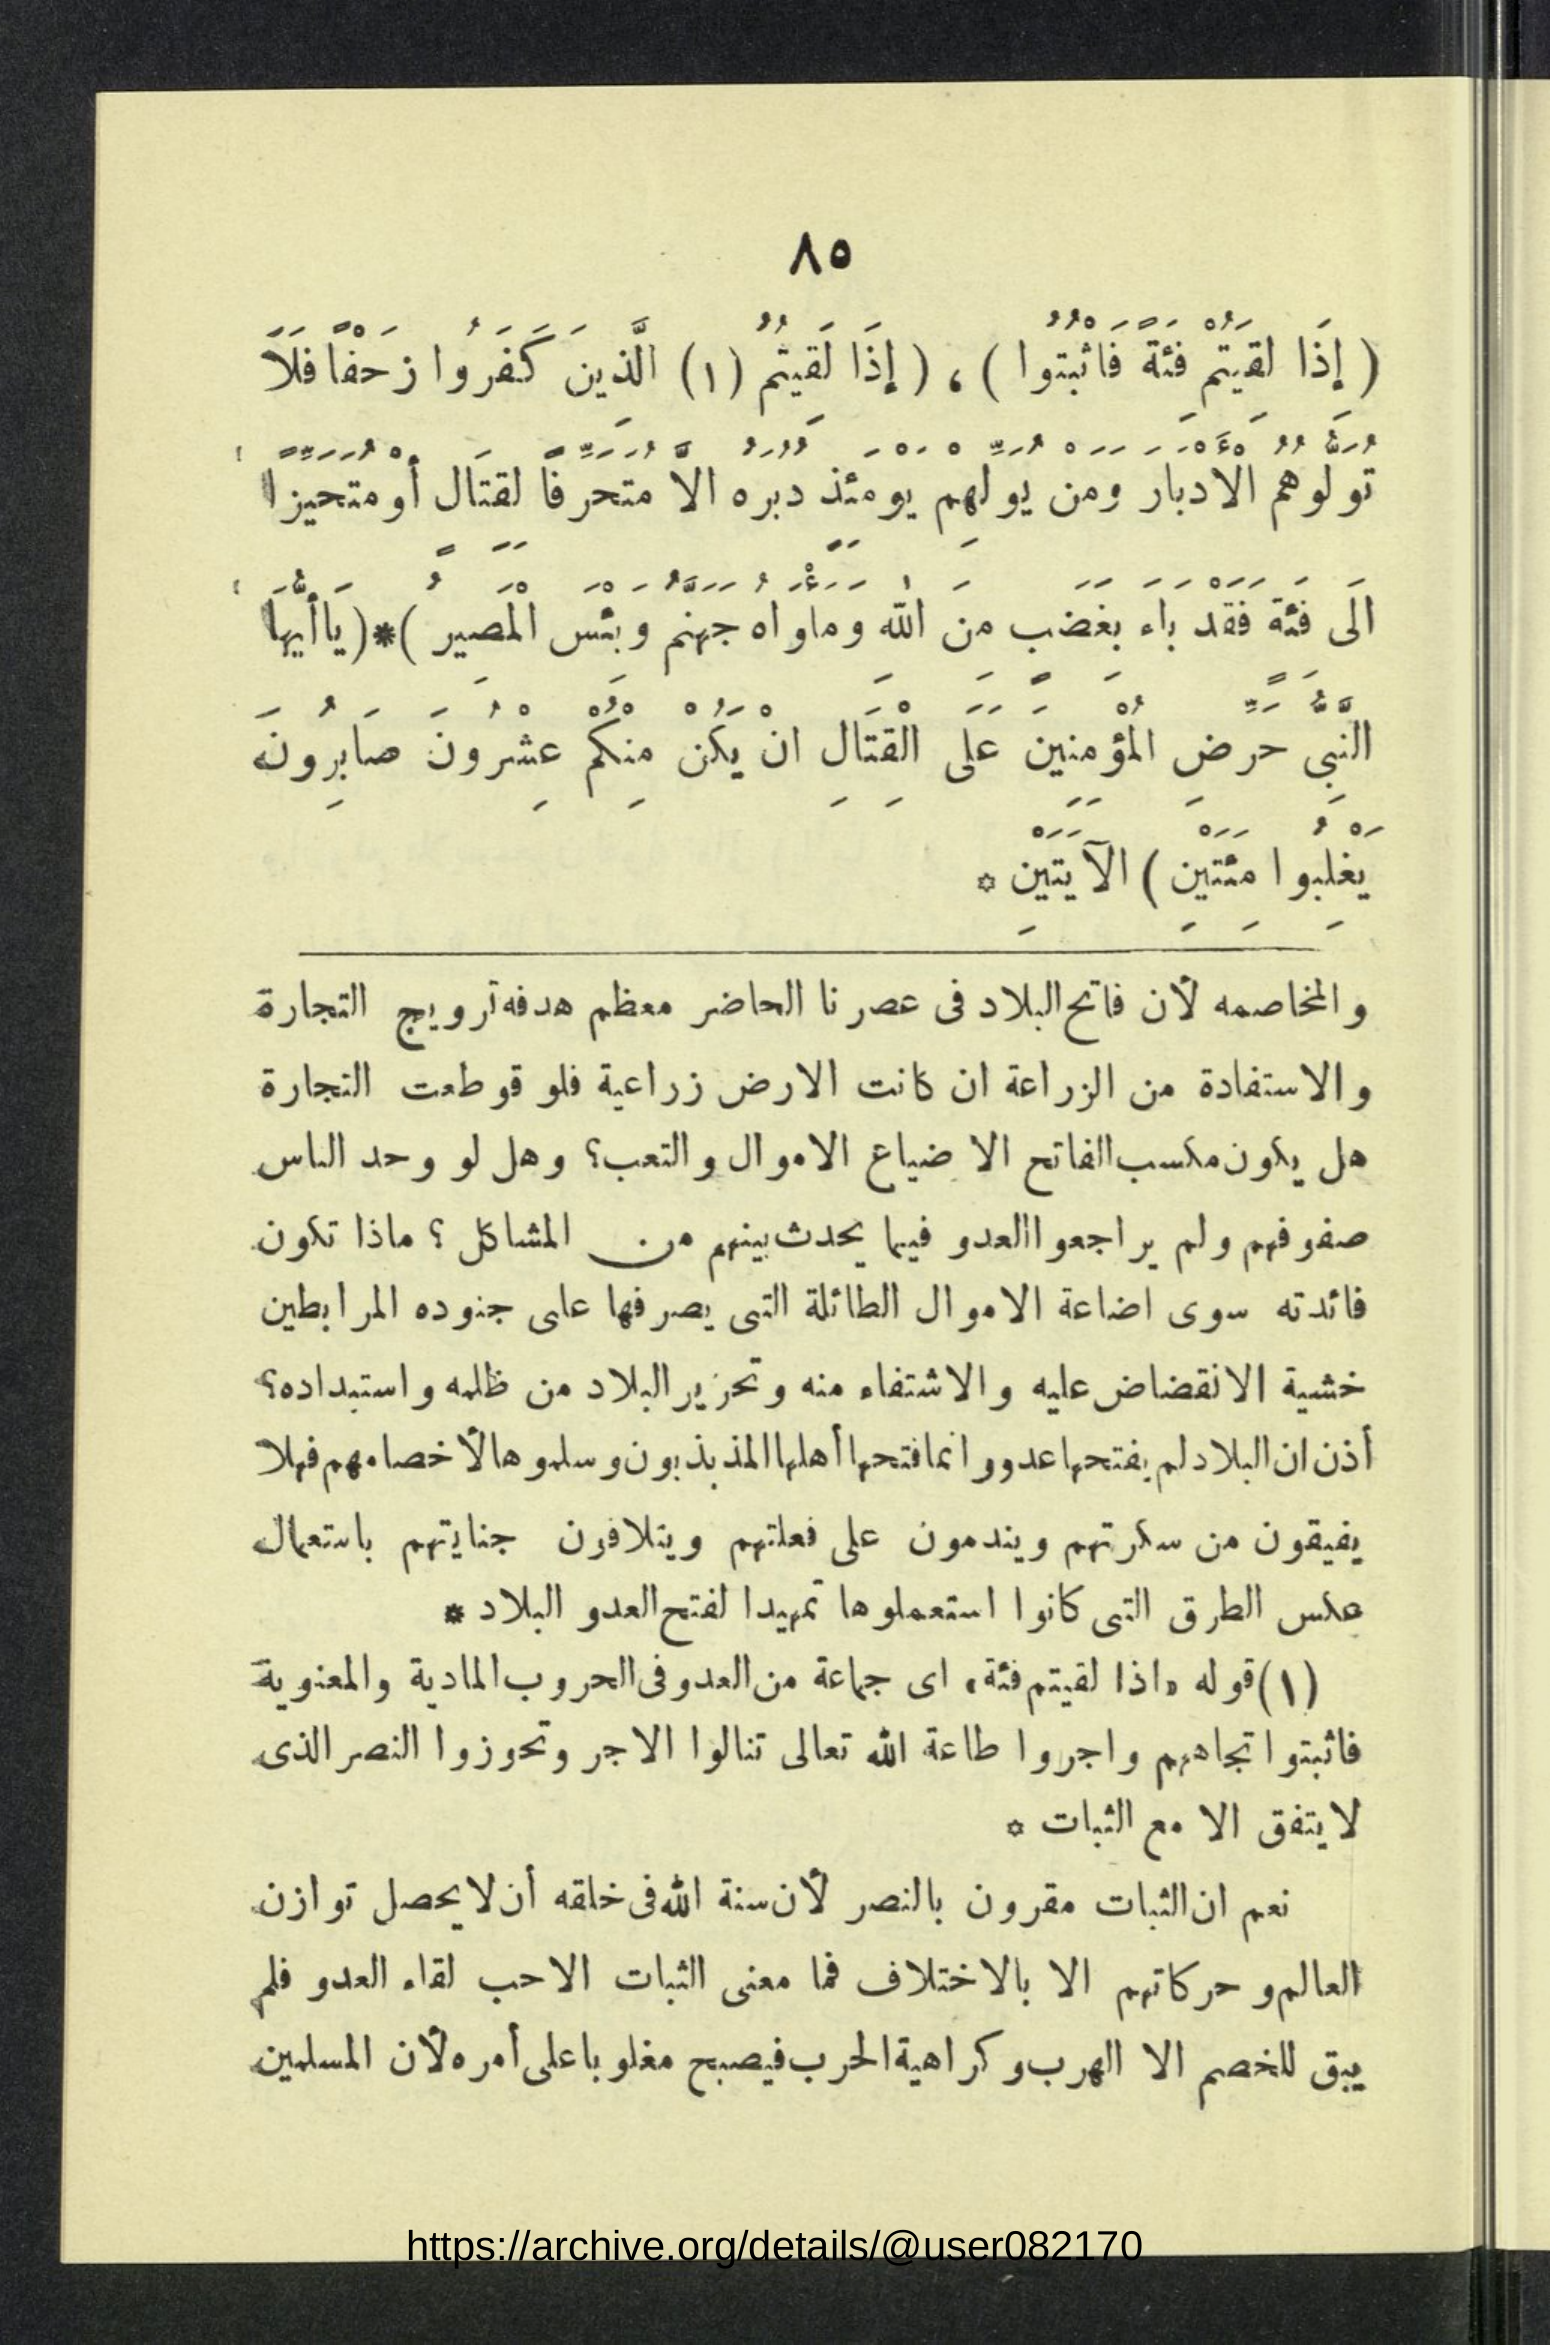 ٨٥
( إِذَا لَقِيتُمْ فِئَةً فَاثْبُتُوا ) ، ( إِذَا لَقِيتُمُ (١) الَّذِينَ كَفَرُوا زَحْفًا فَلَا
تُوَلُّوهُمُ الْأَدْبَارَ وَمَنْ يُوَلِّهِمْ يَوْمَئِذٍ دُبُرَهُ إِلَّا مُتَحَرِّفًا لِقِتَالٍ أَوْ مُتَحَيِّزًا
إِلَى فِئَةٍ فَقَدْ بَاءَ بِغَضَبٍ مِنَ اللهِ وَمَأْوَاهُ جَهَنَّمُ وَبِئْسَ الْمَصِيرُ )*( يَا أَيُّهَا
النَّبِىُّ حَرِّضِ الْمُؤْمِنِينَ عَلَى الْقِتَالِ إِنْ يَكُنْ مِنْكُمْ عِشْرُونَ صَابِرُونَ
يَغْلِبُوا مِئَتَيْنِ ) الآيَتَيْنِ *
والمخاصمه لأن فاتح البلاد فى عصرنا الحاضر معظم هدفه ترويج التجارة
والاستفادة من الزراعة ان كانت الارض زراعية فلو قوطعت التجارة
هل يكون مكسب الفاتح الا ضياع الاموال والتعب؟ وهل لو وحد الناس
صفوفهم ولم يراجعوا العدو فيما يحدث بينهم من المشاكل ؟ ماذا تكون
فائدته سوى اضاعة الاموال الطائلة التى يصرفها على جنوده المرابطين
خشية الانقضاض عليه والاشتفاء منه وتحرير البلاد من ظلمه واستبداده؟
أذن ان البلاد لم يفتحها عدو وانما فتحها أهلها المذبذبون وسلموها لأخصامهم فهلا
يفيقون من سكرتهم ويندمون على فعلتهم ويتلافون جنايتهم باستعمال
عكس الطرق التى كانوا استعملوها تمهيدا لفتح العدو البلاد *
(١) قوله «اذا لقيتم فئة» اى جماعة من العدو فى الحروب المادية والمعنوية
فاثبتوا تجاههم واجروا طاعة الله تعالى تنالوا الاجر وتحوزوا النصر الذى
لا يتفق الا مع الثبات *
نعم ان الثبات مقرون بالنصر لأن سنة الله فى خلقه أن لا يحصل توازن
العالم وحركاتهم الا بالاختلاف فما معنى الثبات الاحب لقاء العدو فلم
يبق للخصم الا الهرب وكراهية الحرب فيصبح مغلوبا على أمره لأن المسلمين
https://archive.org/details/@user082170